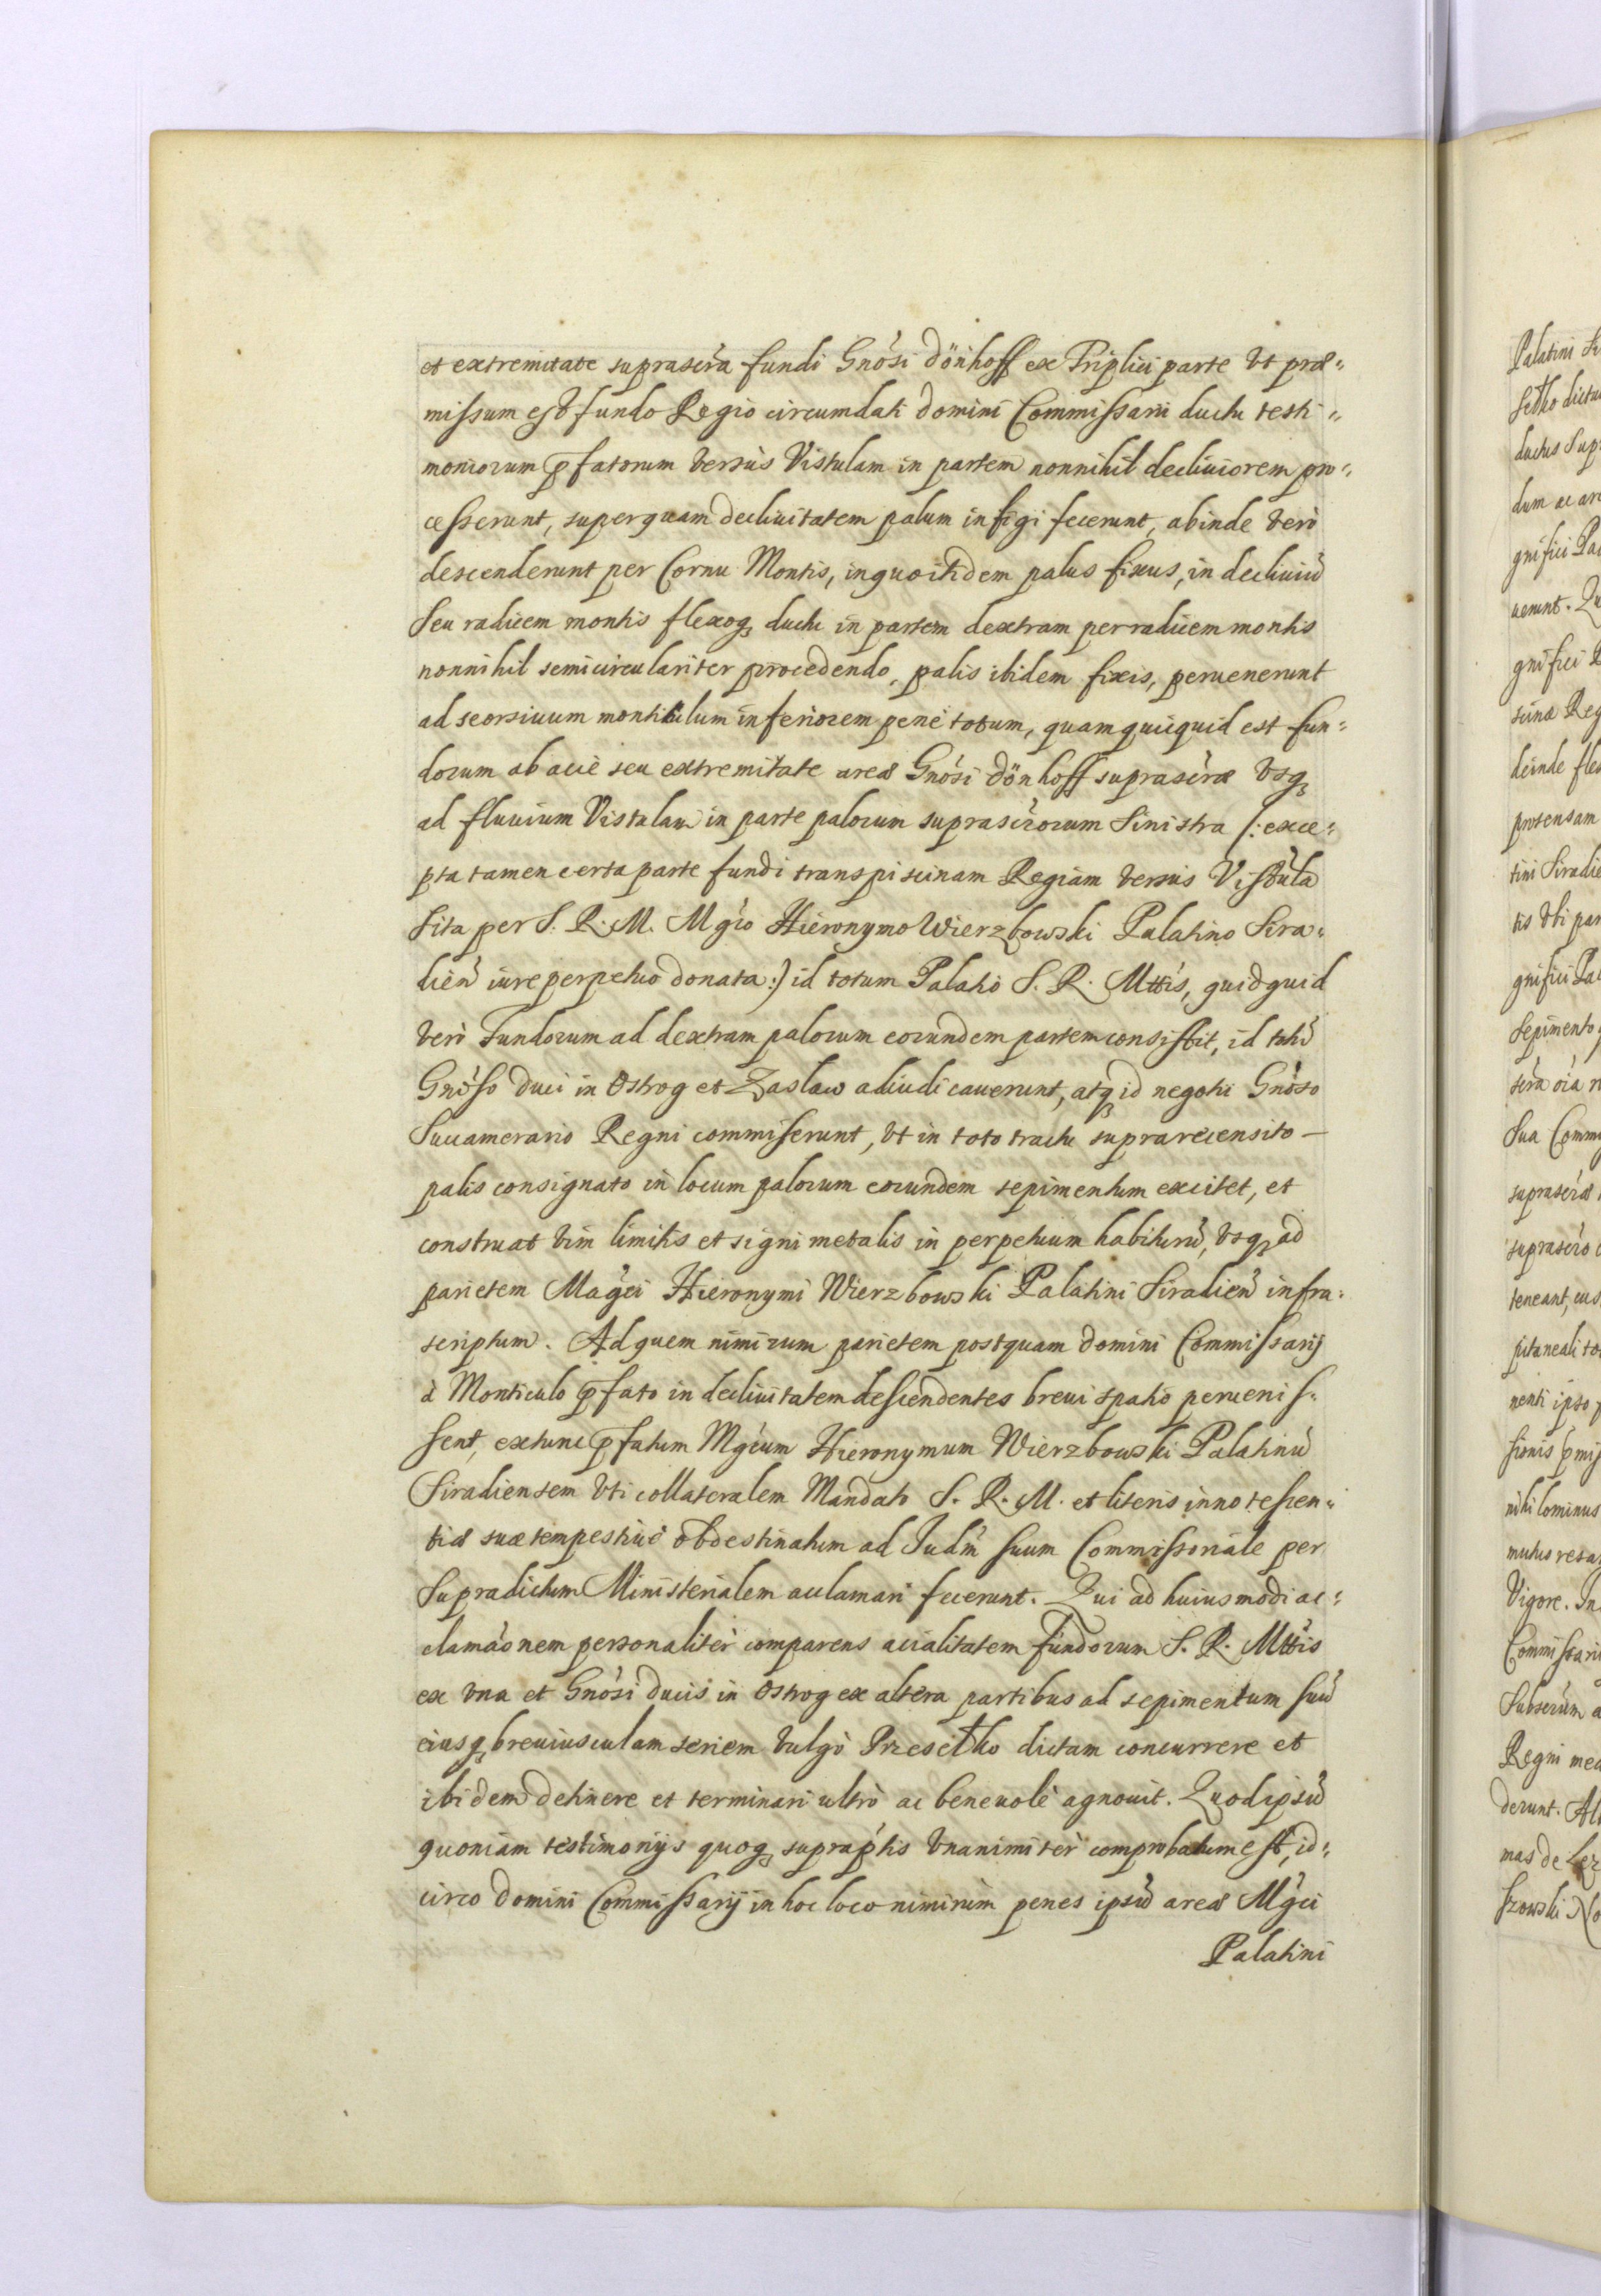 et extremitate suprascr̃a fundi Gnõsi Dönhoff ex Triplici parte Vt præ=
missum est fundo Regio circumdati domini Commissarii ductu testi=
moniorum p̃fatorum versùs Vistulam in partem nonnihil decliuiorem pro=
cesserunt, super quam decliuitatem palum infigi fecerunt, abinde verò
descenderunt per Cornu Montis, in quo itidem palus fixus, in decliuiũ
seu radicem montis flexoq₃ ductu in partem dextram per radicem montis
nonnihil semicirculariter procedendo, palis ibidem fixis, peruenerunt
ad seorsiuum monticulum inferiorem penè totum, quam quicquid est fun=
dorum ab acie seu extremitate areæ Gnõsi Dönhoff suprascr̃æ vsq₃
ad fluuium Vistulam in parte palorum suprascr̃orum sinistra /: exce=
pta tamen certa parte fundi trans piscinam Regiam versus Vistulã
sita per S. R. M. Mg̃co Hieronymo Wierzbowski Palatino Sira=
dieñ iure perpetuo donata :) id totum Palatio S. R. Mttis, quidquid
verò Fundorum ad dextram palorum eorundem partem consistit, id totũ
Gnõso Duci in Ostrog et Zaslaw adiudicauerunt, atq₃ id negotii Gnõso
Succamerario Regni commiserunt, vt in toto tractu suprarecensito —
palis consignato in locum palorum eorundem sepimentum excitet, et
construat vim limitis et signi metalis in perpetuum habiturũ, vsq₃ ad
parietem Mag̃ci Hieronymi Wierzbowski Palatini Siradieñ infra=
scriptum. Ad quem nimirum parietem postquam domini Commissarij
à Monticulo p̃fato in decliuitatem descendentes breui spatio peruenis=
sent, extunc p̃fatum Mg̃cum Hieronymum Wierzbowski Palatinũ
Siradiensem vti collateralem Mandato S. R. M. et literis innotescen=
tiæ suæ tempestiuè obdestinatum ad Judm̃ suum Commissoriale per
supradictum Ministerialem acclamari fecerunt. Qui ad huiusmodi ac=
clamãonem personalitèr comparens acialitatem fundorum S. R. Mttis
ex vna et Gnõsi Ducis in Ostrog ex altera partibus ad sepimentum suũ
eiusq₃ breuiusculam seriem vulgò Przesetko dictam concurrere et
ibidem definere et terminari ultrò ac beneuolè agnouit. Quod ipsũ
quoniam testimonijs quoq₃ suprap̃tis vnanimitèr comprobatum est, id=
circo domini Commissarij in hoc loco nimirùm penes ipsũ areæ Mg̃ci
Palatini